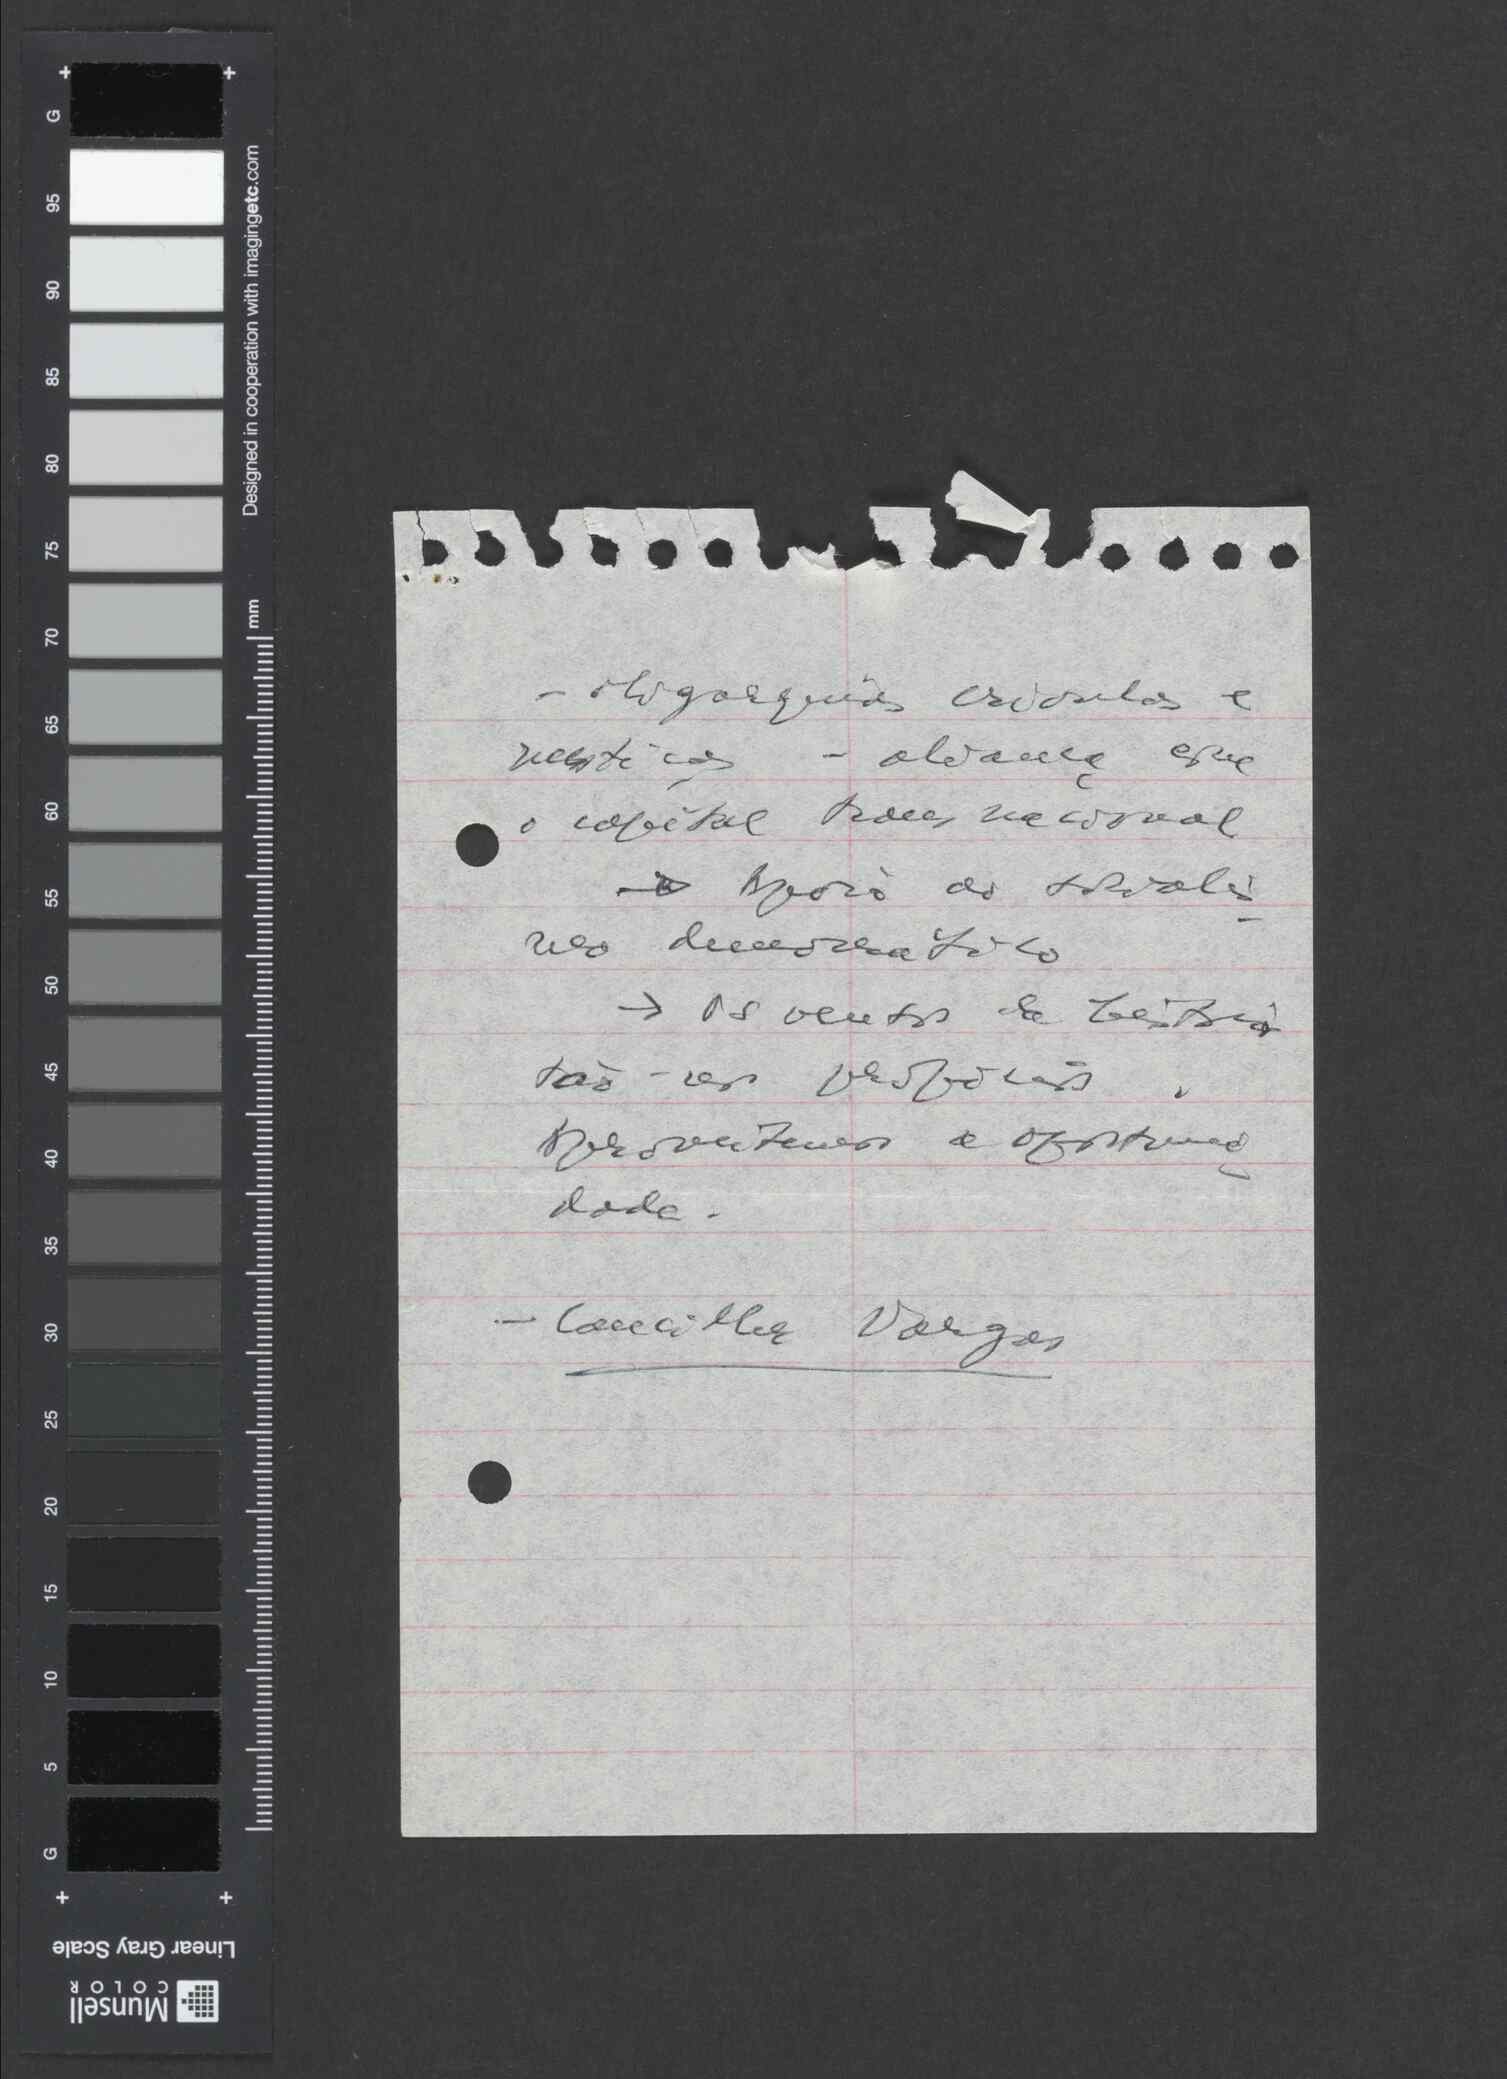 - oligarquias crioulas e
mestiças - aliança com
o capital transnacional
→ Apoio ao socialis
mo democrático
→ Os ventos da história
são-nos propícios.
Aproveitemos a oportuni
dade.
- Canciller Vargas
G
95
90
85
80
75
70
65
60
55
50
45
40
35
30
25
20
15
10
5
G
Designed in cooperation with imagingetc.com
mm
Linear Gray Scale
Munsell
COLOR